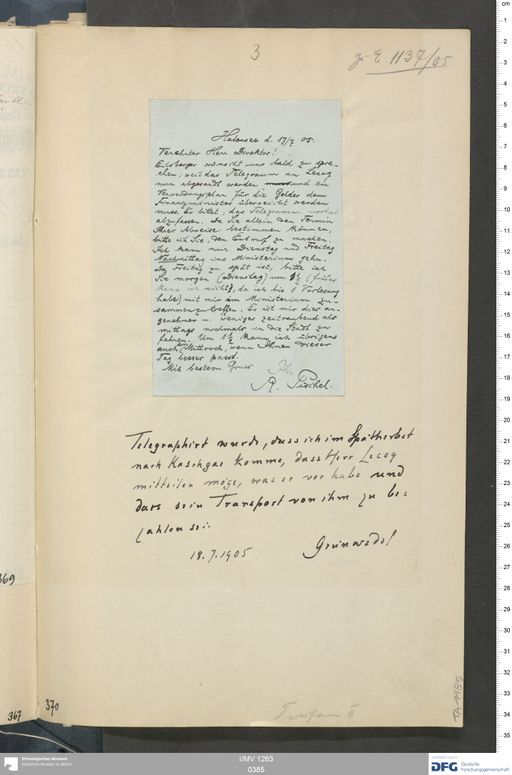 3
zu E 1137/05
Halensee d. 17/7 05.
Verehrter Herr Direktor!
Elsberger wünscht uns bald zu spre-
chen, weil das Telegramm an Lecoq
nun abgesandt werden und ein
Verwendungsplan für die Gelder dem
Finanzminister überreicht werden
muss. Er bittet, das Telegramm vorher
abzufassen. Da Sie allein den Termin
Ihrer Abreise bestimmen können,
bitte ich Sie, den Entwurf zu machen.
Ich kann nur Dienstag und Freitag
Nachmittag ins Ministerium gehn.
Da Freitag zu spät ist, bitte ich
Sie morgen (Dienstag) um (früher
kann ich nicht, da ich bis 1 Vorlesung
habe) mit mir im Ministerium zu-
sammenzutreffen. Es ist mir dies an-
genehmer u. weniger zeitraubend als
mittags nochmals in die Stadt zu
fahren. Um kann ich übrigens
auch Mittwoch, wenn Ihnen dieser
Tag besser passt.
Mit bestem Gruss Ihr
R. Pischel.
Telegraphirt wurde, dass ich im Spätherbst
nach Kaschgar komme, dass Herr Lecoq
mitteilen möge, was er vor habe und
dass sein Transport von ihm zu be-
zahlen sei.
18.7.1905 Grünwedel
369
367
370
Turfan
TA 1185
Ethnologisches Museum
Staatliche Museen zu Berlin
I/MV 1263
0385
DFG Deutsche
Forschungsgemeinschaft